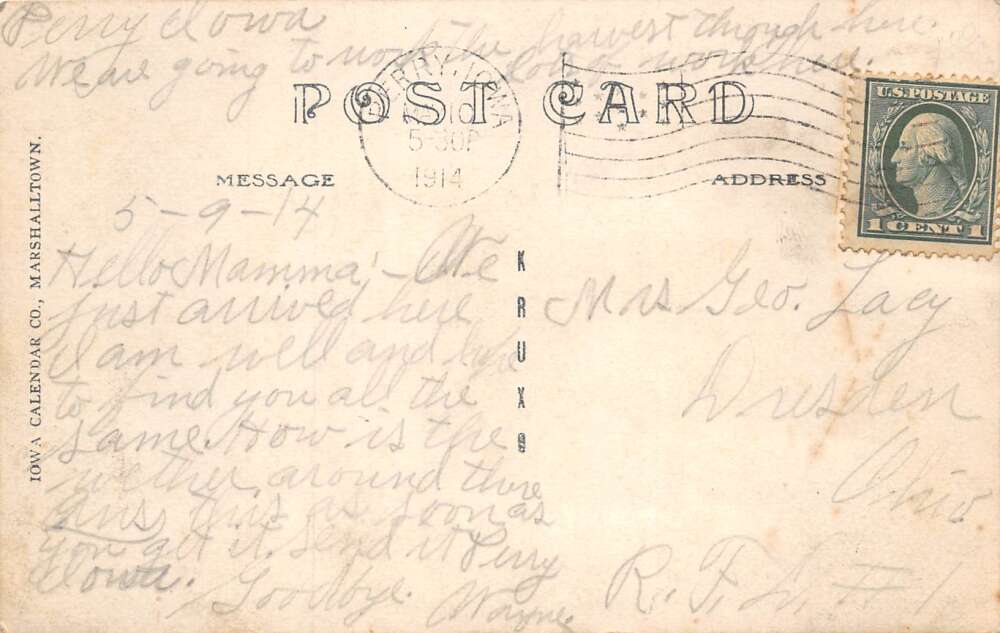 Perry Iowa
We are going to work the harvest through here.
work here.
POST CARD
PERRY, IOWA
10
5-30P
1914
U.S. POSTAGE
1 CENT 1
MESSAGE
ADDRESS
IOWA CALENDAR CO., MARSHALLTOWN.
KRUXO
5-9-14
Hello Mamma, - We
just arrived here
I am well and hope
to find you all the
same. How is the
wether around there
Ans, this as soon as
you get it. Send it Perry
Iowa.
Goodbye.
Wayne.
Mrs Geo. Lacy
Dresden
Ohio
R. F. D. # 1